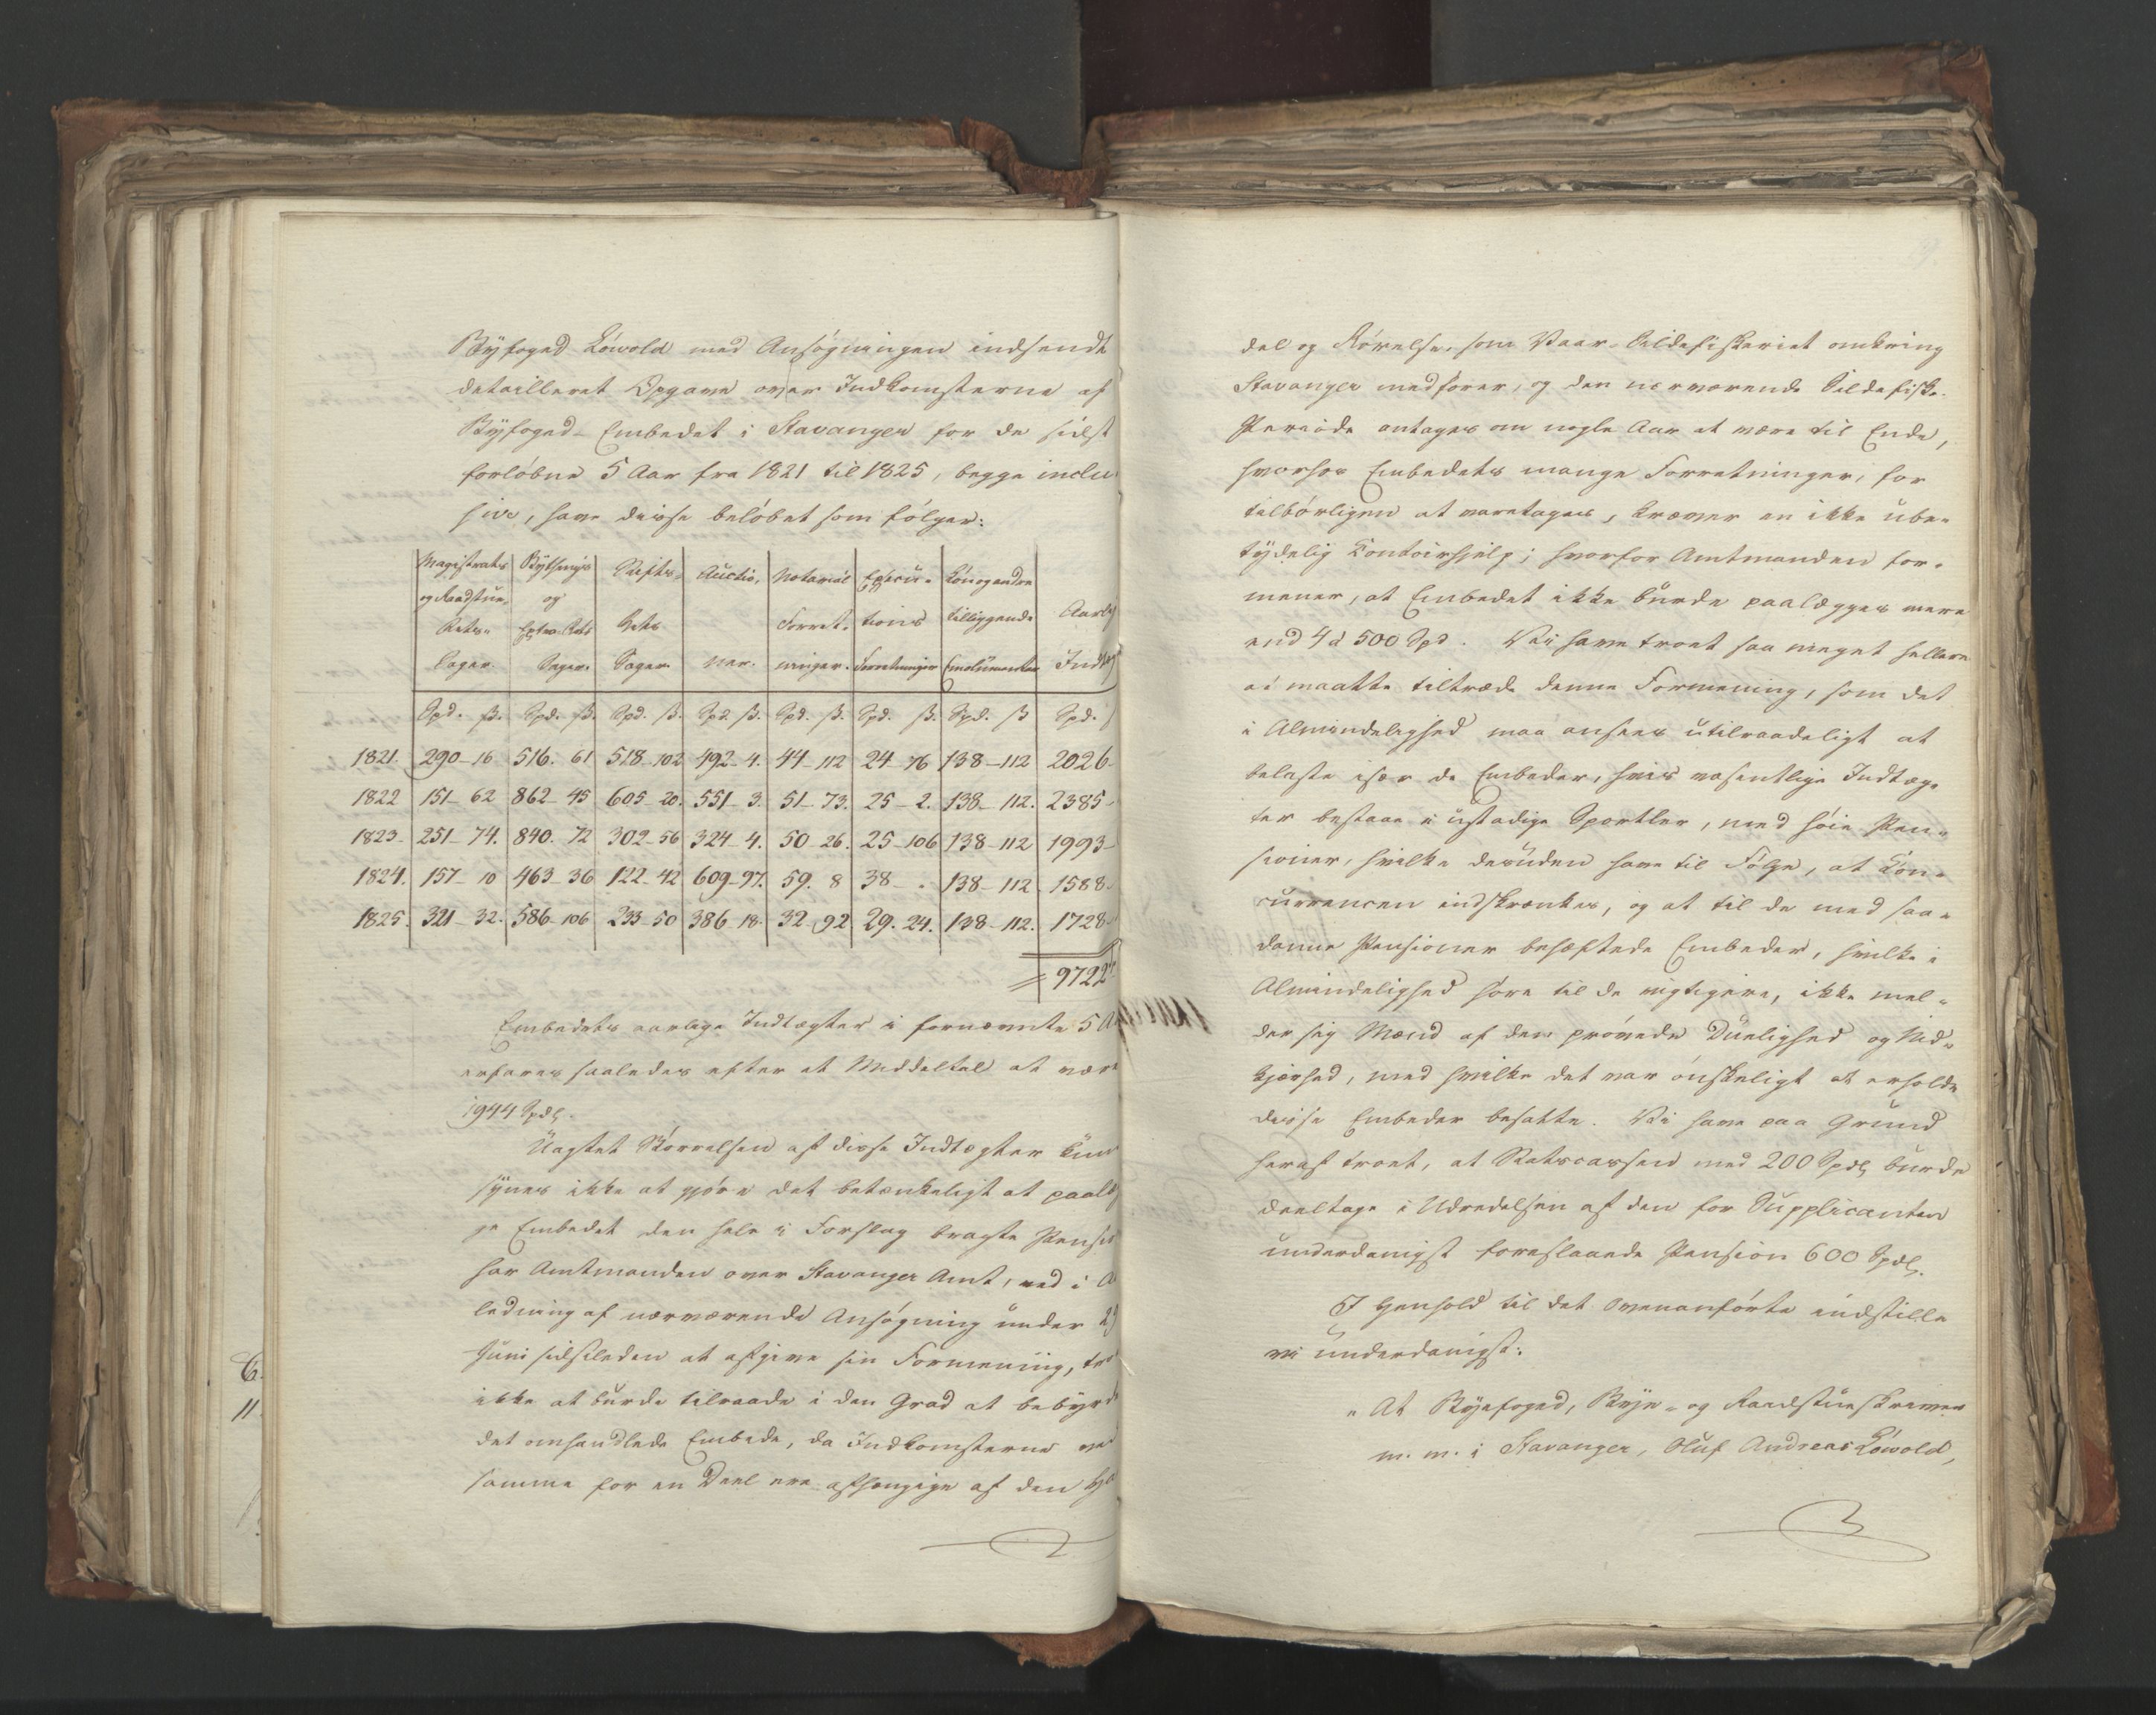 Byfoged Löwold med Ansøgningen indsendt
detailleret Opgave over Indkomsterne af
Byfoged-Embedet i Stavanger for de sidst
forløbne 5 Aar fra 1821 til 1825, begge inclu
sive, have disse beløbet som følger:
Magistrats og Raadstue- Rets- Sager. | Bythings og Extra-Rets Sager. | Skifte- Rets Sager. | Auctio, ner. | Notarial Forret- ninger. | Execu- tions Forretninger | Løn og andre tilliggende Emolumenter | Aarl Indt
Spd. ß. | Spd. ß. | Spd. ß. | Spd. ß. | Spd. ß. | Spd. ß. | Spd. ß | Spd.
1821. 290-16 516. 61 518-102 492-4. 44-112 24-76 138-112 2026-
1822 151-62 862-45 605-20. 551-3. 51-73. 25-2. 138-112. 2385-
1823- 251-74. 840. 72 302-56 324-4. 50-26. 25-106 138-112 1993-
1824. 157-10 463-36 122-42 609-97. 59. 8 38- . 138-112. 1588-
1825. 321-32. 586-106 233-50 386-18- 32-92 29. 24. 138-112. 1728-
9722
Embedets aarlige Indtægter i fornævnte 5 A
erfares saaledes efter et Middeltal at være
1944 Spdl.
Uagtet Størrelsen af disse Indtægter kun
synes ikke at gjøre det betænkeligt at paalæg
ge Embedet den hele i Forslag bragte Pensio
har Amtmanden over Stavanger Amt, ved i A
ledning af nærværende Ansøgning under 29
Juni sidstleden at afgive sin Formening, tro
ikke at burde tilraade i den Grad at bebyrde
det omhandlede Embede, da Indkomsterne ved
samme for en Deel ere afhængige af den Ha
del og Rørelse, som Vaar-Sildefiskeriet omkring
Stavanger medfører, og den nærværende Sildefiske-
Periode antages om nogle Aar at være til Ende,
hvorhos Embedets mange Forretninger, for
tilbørligen at varetages, kræver en ikke ube-
tydelig Contoirhjelp; hvorfor Amtmanden for-
mener, at Embedet ikke burde paalægges mere
end 4 à 500 Spd. Vi have troet saa meget hellere
at maatte tiltræde denne Formening, som det
i Almindelighed maa ansees utilraadeligt at
belaste især de Embeder, hvis væsentlige Indtæg-
ter bestaae i ustadige Sportler, med høie Pen-
sioner, hvilke desuden have til Følge, at Con-
currencen indskrænkes, og at til de med saa-
danne Pensioner behæftede Embeder, hvilke i
Almindelighed høre til de vigtigere, ikke mel-
der sig Mænd af den prøvede Duelighed og Ved-
kjærhed, med hvilke det var ønskeligt at erholde
disse Embeder besatte. Vi have paa Grund
heraf troet, at Statscassen med 200 Spdl burde
deeltage i Udredelsen af den for Supplicanten
underdanigst foreslaaede Pension 600 Spdl.
I Henhold til det Ovenanførte indstille
vi underdanigst:
"At Byefoged, Bye- og Raadstueskriver
m. m. i Stavanger, Oluf Andreas Löwold,